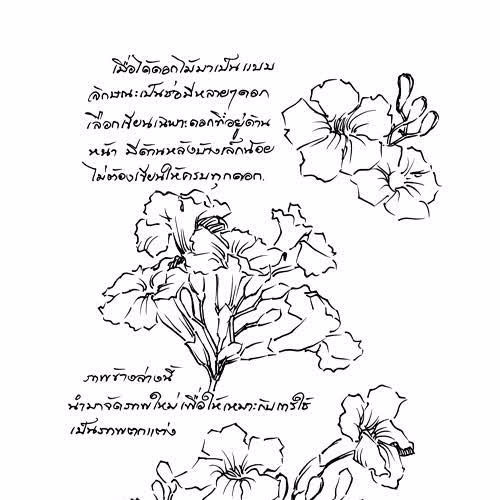 เมื่อได้ดอกไม้มาเป็นแบบ
ลักษณะเป็นช่อมีหลายๆดอก
เลือกเขียนเฉพาะดอกที่อยู่ด้าน
หน้า มีด้านหลังบ้างเล็กน้อย
ไม่ต้องเขียนให้ครบทุกดอก.
ภาพข้างล่างนี้
นำมาจัดภาพใหม่เพื่อให้เหมาะกับการใช้
เป็นภาพตกแต่ง